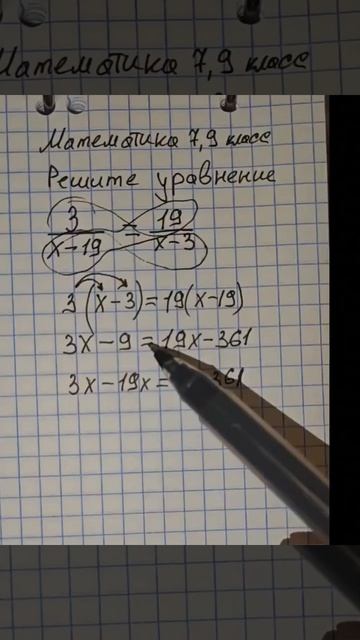 Математика 7,9 класс
Математика 7,9 класс
Решите уравнение
3/(x-19) = 19/(x-3)
3(x-3)=19(x-19)
3x-9=19x-361
3x-19x= 361